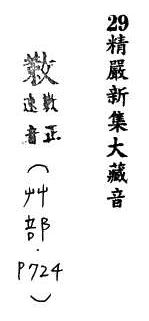 29精嚴新集大藏音
正
速音
(艸部.P724)